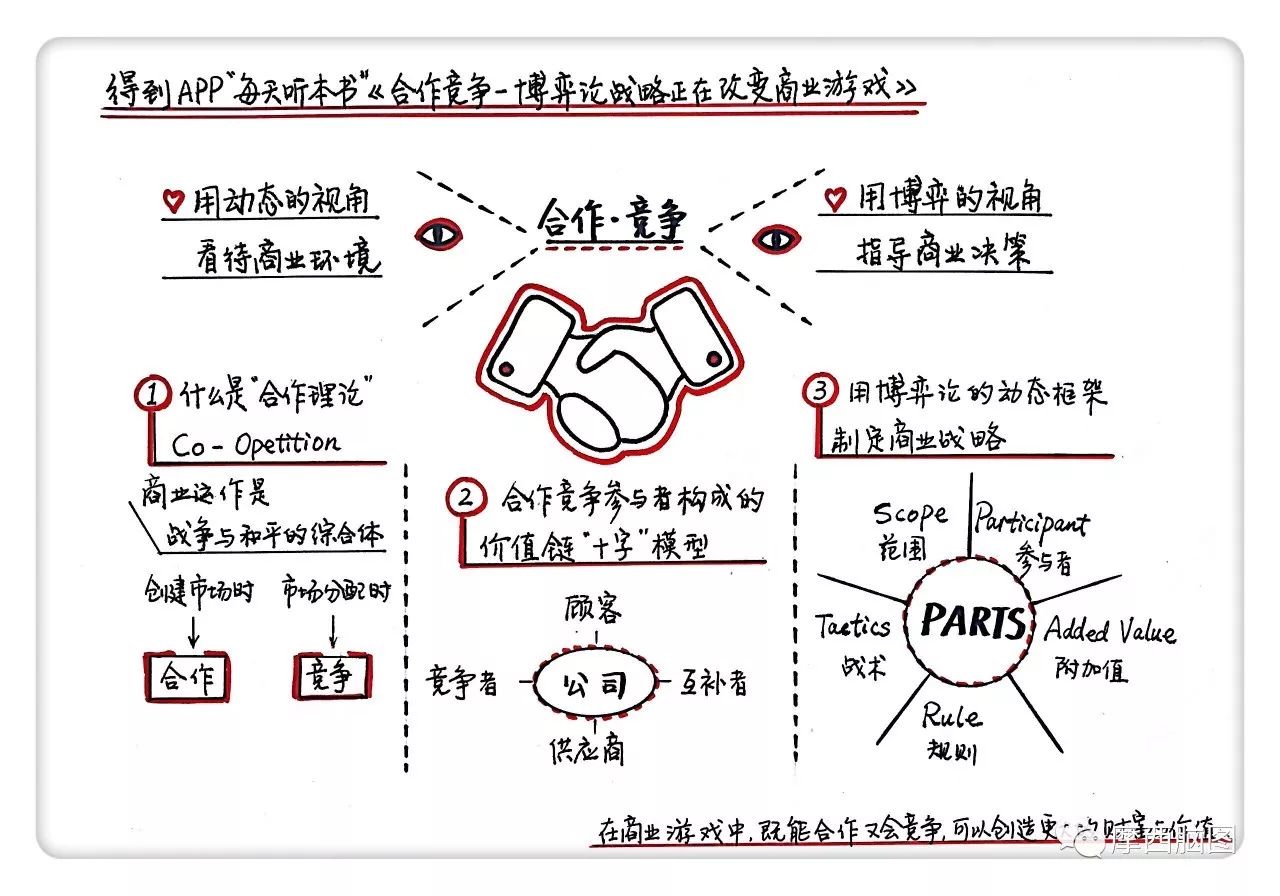 得到APP"每天听本书"《合作竞争-博弈论战略正在改变商业游戏》
用动态的视角
看待商业环境
合作·竞争
用博弈的视角
指导商业决策
1 什么是"合作理论"
Co-Opetition
商业运作是
战争与和平的综合体
创建市场时 市场分配时
合作 竞争
2 合作竞争参与者构成的
价值链"十字"模型
顾客
竞争者 公司 互补者
供应商
3 用博弈论的动态框架
制定商业战略
Scope
范围
Participant
参与者
PARTS
Tactics
战术
Added Value
附加值
Rule
规则
在商业游戏中,既能合作又会竞争,可以创造更
摩西脑图